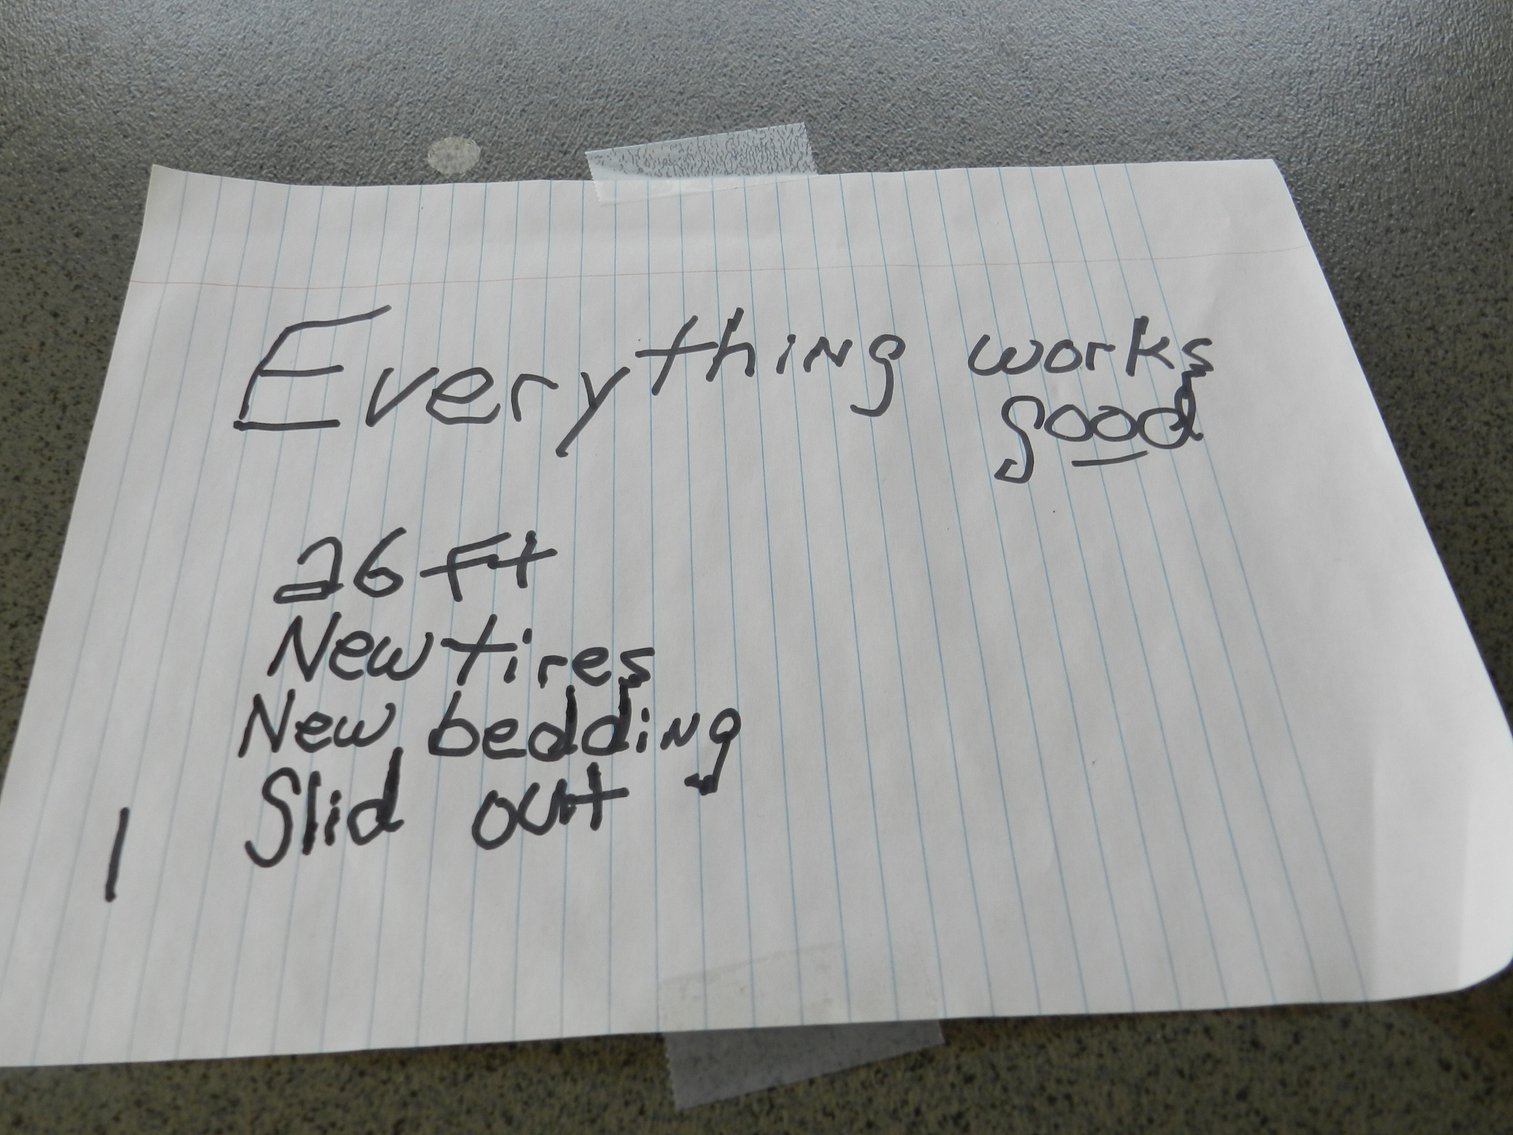 Everything works
good
26 Ft
New tires
New bedding
1 Slid out